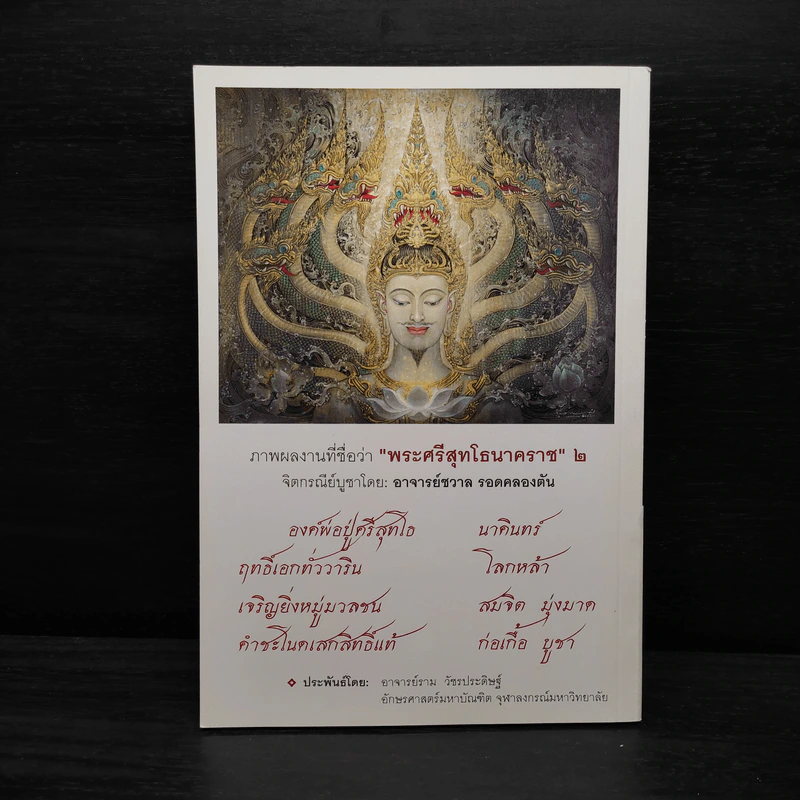 ภาพผลงานที่ชื่อว่า "พระศรีสุทโธนาคราช" ๒
จิตกรณีย์บูชาโดย: อาจารย์ชวาล รอดคลองตัน
องค์พ่อปู่ศรีสุทโธ นาคินทร์
ฤทธิ์เอกทั่ววาริน โลกหล้า
เจริญยิ่งหมู่มวลชน สมจิต มุ่งมาด
คำชะโนดเสกสิทธิ์แท้ ก่อเกื้อ บูชา
❖ ประพันธ์โดย: อาจารย์ราม วัชรประดิษฐ์
อักษรศาสตร์มหาบัณฑิต จุฬาลงกรณ์มหาวิทยาลัย